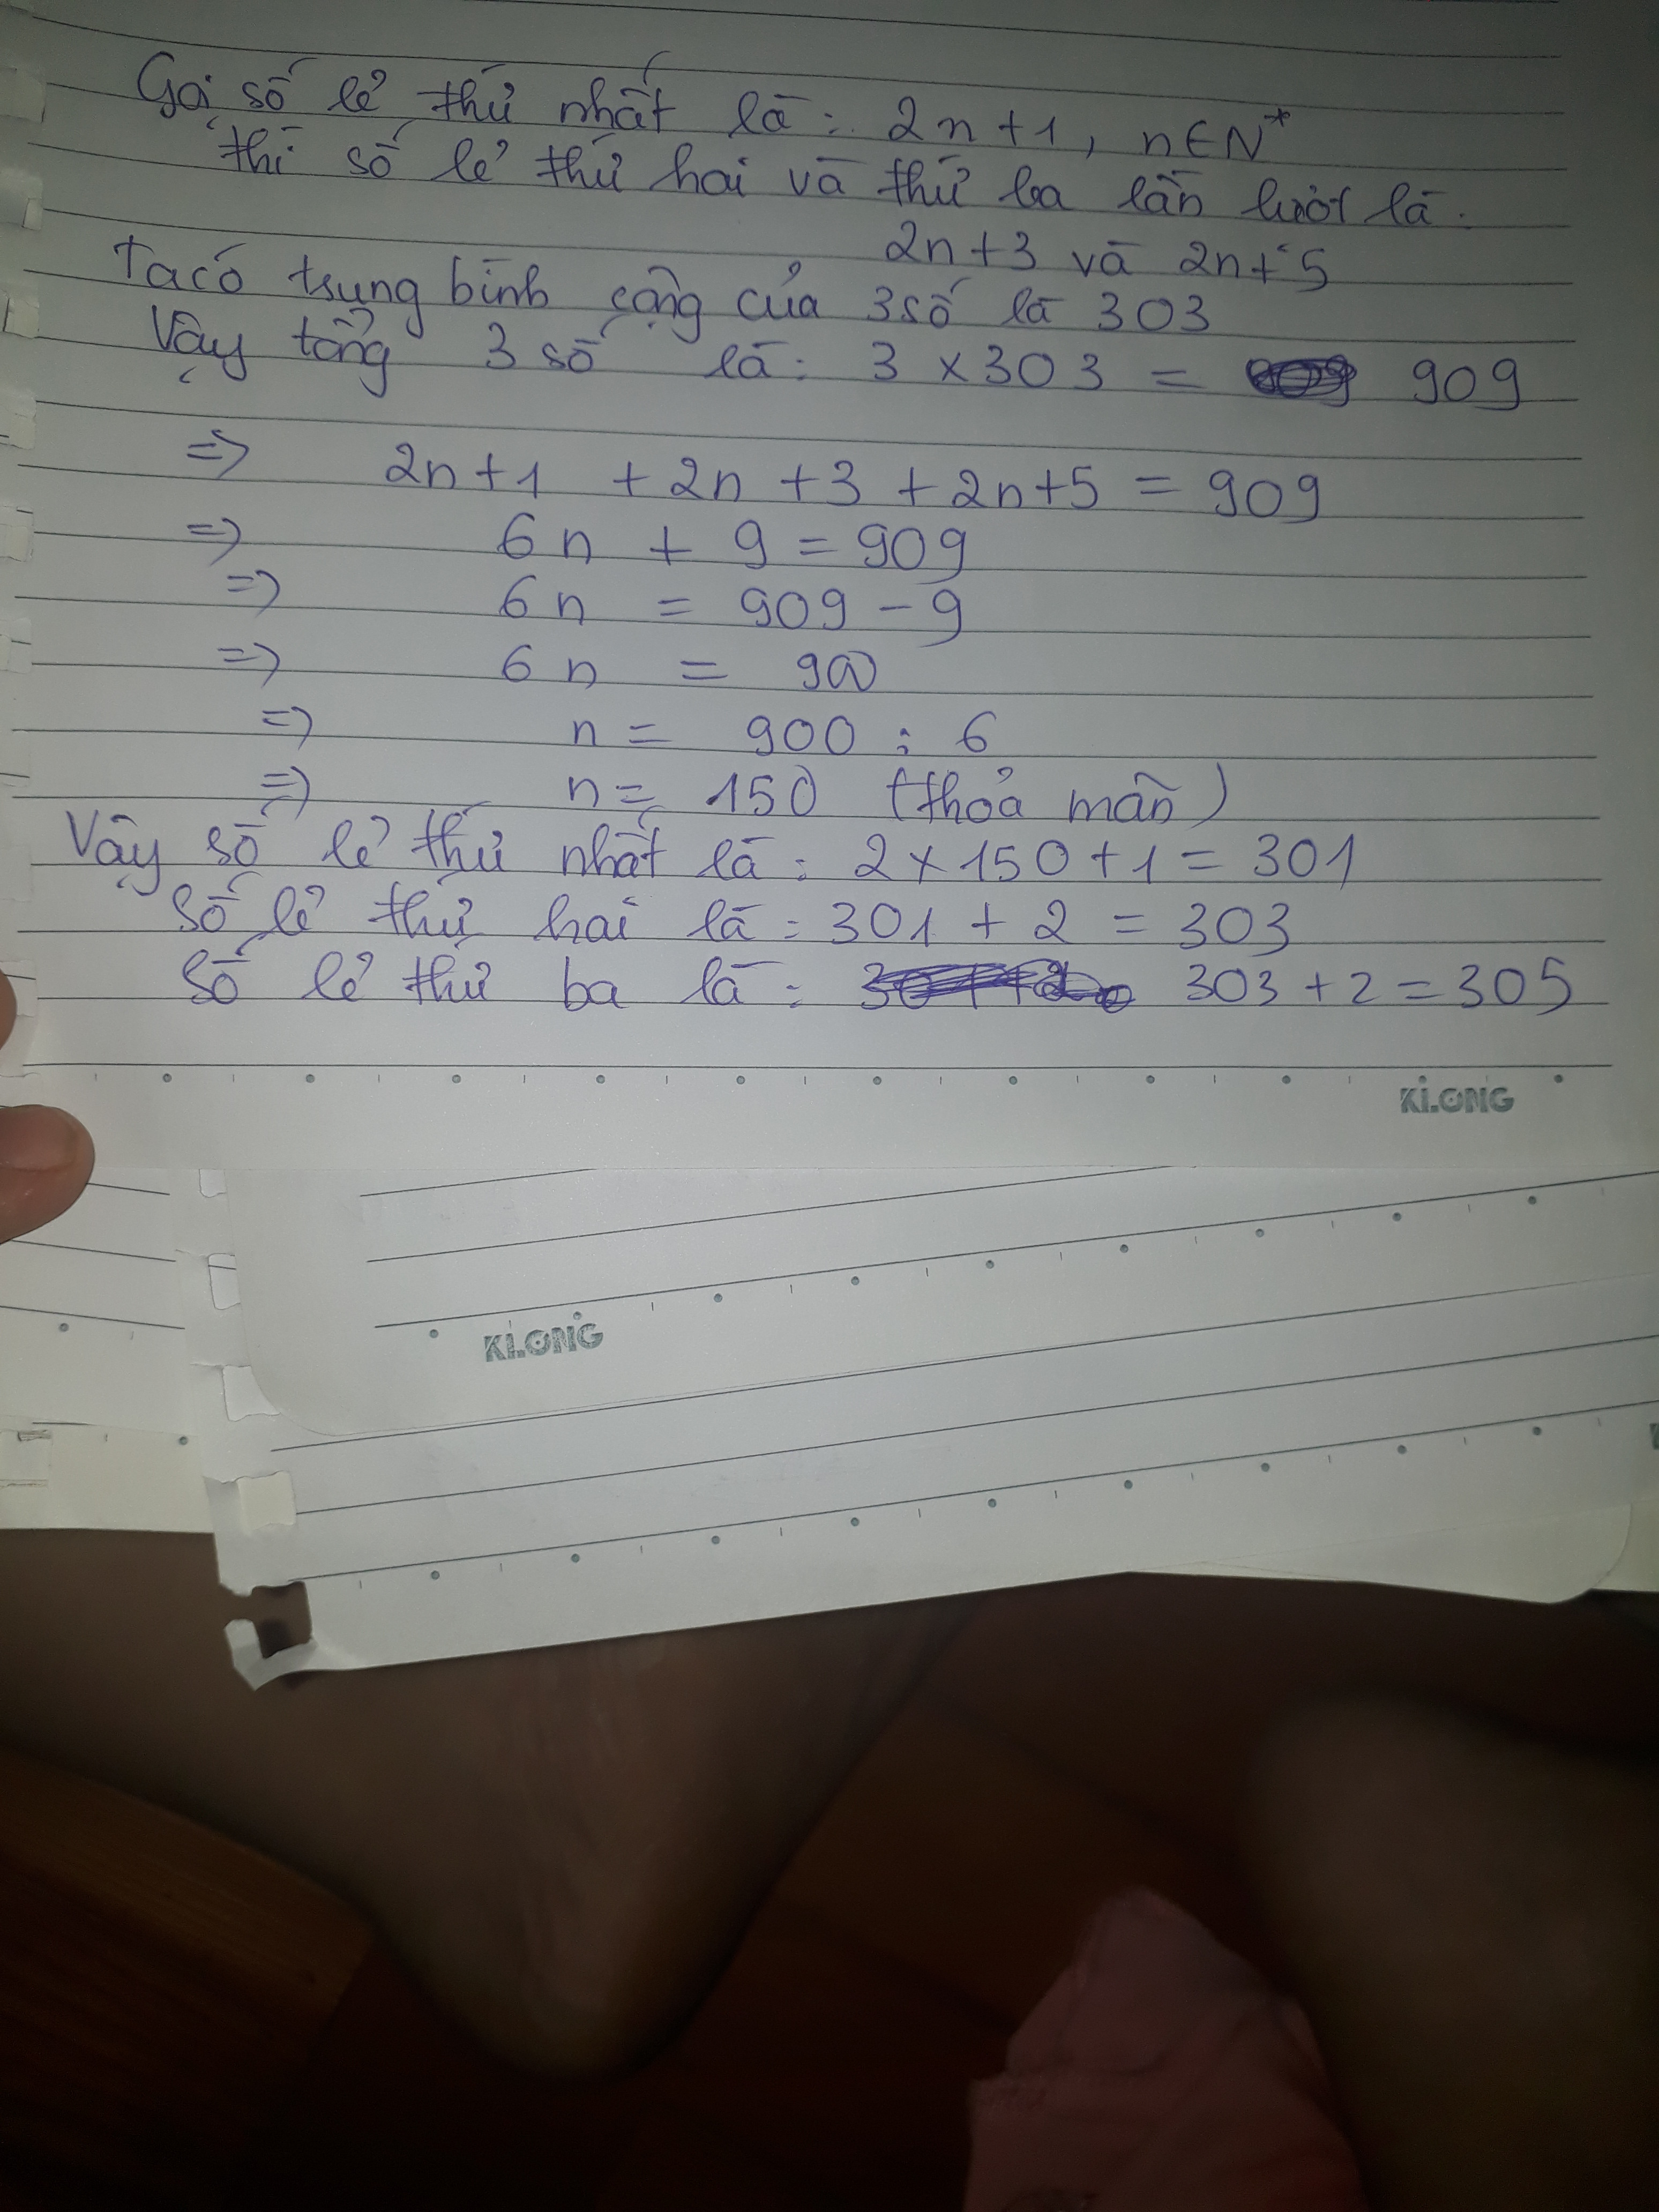 Gọi số lẻ thứ nhất là: 2n+1, n∈N*
thì số lẻ thứ hai và thứ ba lần lượt là.
2n+3 và 2n+5
Ta có trung bình cộng của 3 số là 303
Vậy tổng 3 số là: 3 x 303 = 909
=> 2n+1 + 2n + 3 + 2n+5 = 909
=> 6n + 9 = 909
=> 6n = 909 - 9
=> 6n = 900
=> n = 900 : 6
=> n = 150 (thỏa mãn)
Vậy số lẻ thứ nhất là: 2 x 150 + 1 = 301
Số lẻ thứ hai là: 301 + 2 = 303
Số lẻ thứ ba là: 303 + 2 = 305
KLONG
KLONG